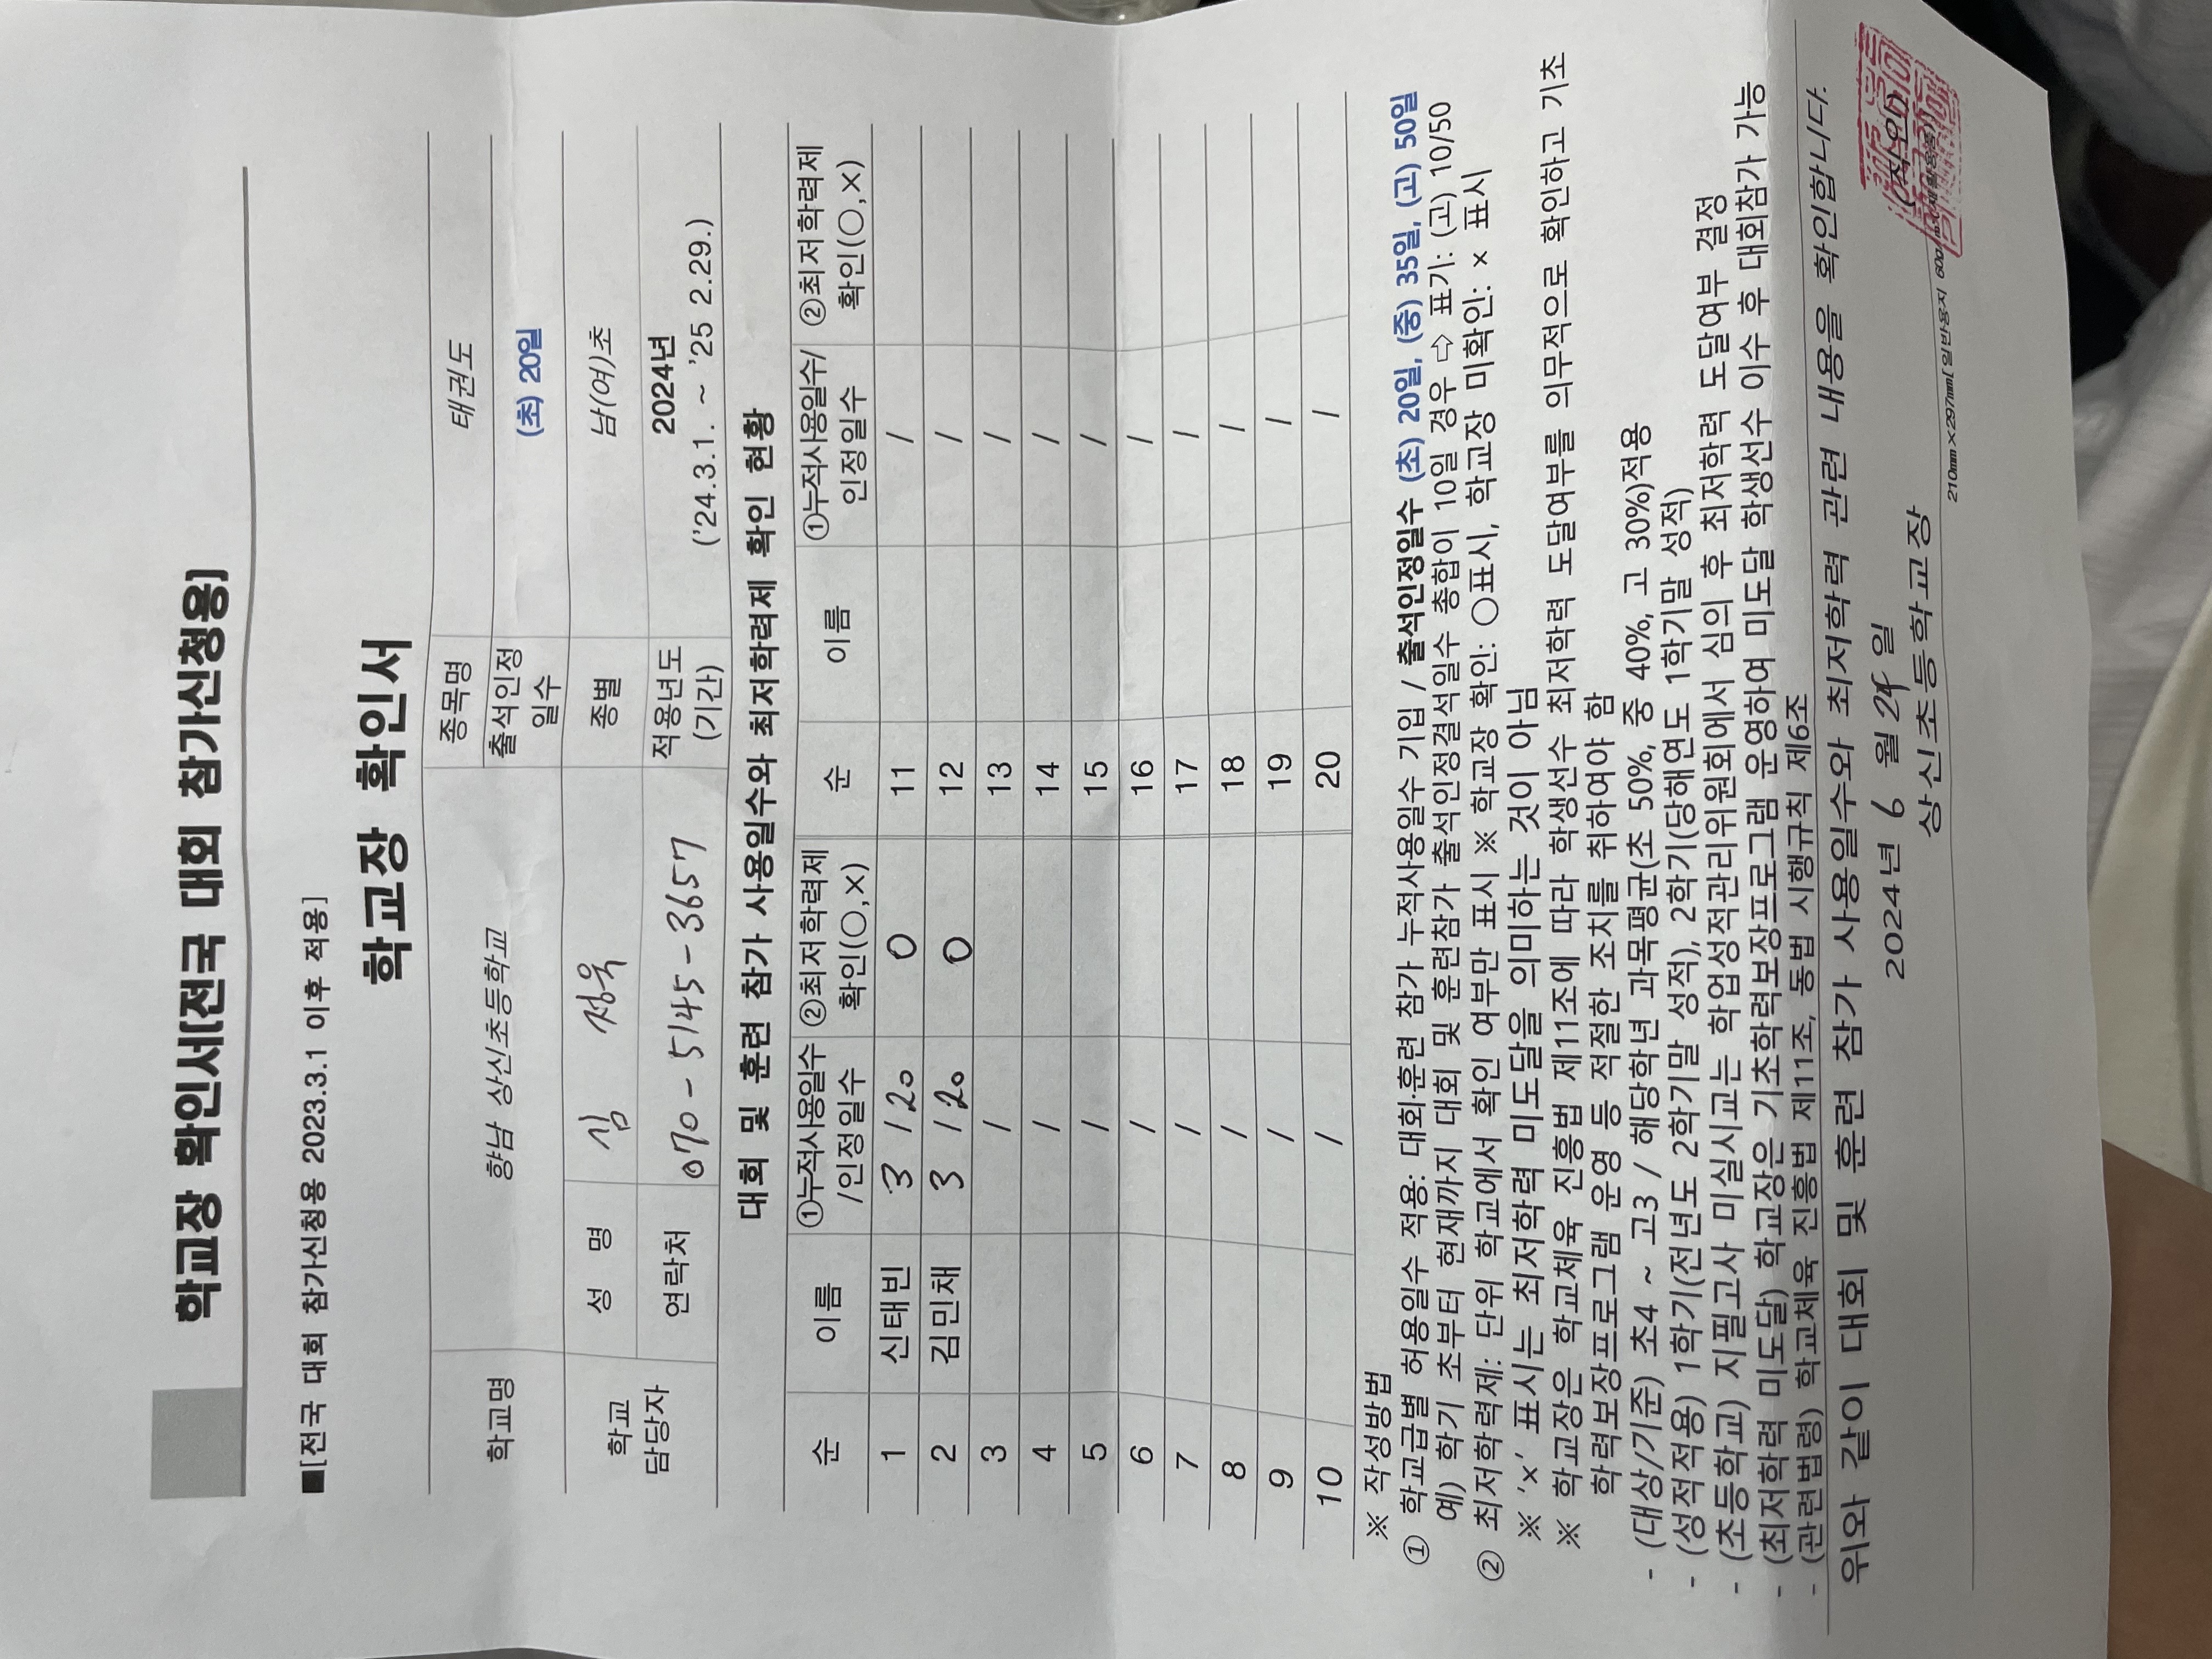 학교장 확인서[전국 대회 참가신청용]
■[전국 대회 참가신청용 2023.3.1 이후 적용]
학교장 확인서
학교명 향남 상신초등학교 종목명 태권도
출석인정일수 (초) 20일
학교 담당자 성 명 심 정욱 종별 남(여)초
연락처 070-5145-3657 적용년도 (기간) 2024년
('24.3.1. ~ '25 2.29.)
대회 및 훈련 참가 사용일수와 최저학력제 확인 현황
순 이름 ①누적사용일수/인정일수 ②최저학력제 확인(○,×) 순 이름 ①누적사용일수/인정일수 ②최저학력제 확인(○,×)
1 신태빈 3 / 20 O 11 /
2 김민채 3 / 20 O 12 /
3 / 13 /
4 / 14 /
5 / 15 /
6 / 16 /
7 / 17 /
8 / 18 /
9 / 19 /
10 / 20 /
※ 작성방법
① 학교급별 허용일수 적용: 대회·훈련 참가 누적사용일수 기입 / 출석인정일수 (초) 20일, (중) 35일, (고) 50일
예) 학기 초부터 현재까지 대회 및 훈련참가 출석인정결석일수 총합이 10일 경우 ⇨ 표기: (고) 10/50
② 최저학력제: 단위 학교에서 확인 여부만 표시 ※ 학교장 확인: ○표시, 학교장 미확인: × 표시
※ '×' 표시는 최저학력 미도달을 의미하는 것이 아님
※ 학교장은 학교체육 진흥법 제11조에 따라 학생선수 최저학력 도달여부를 의무적으로 확인하고 기초
학력보장프로그램 운영 등 적절한 조치를 취하여야 함
- (대상/기준) 초4 ~ 고3 / 해당학년 과목평균(초 50%, 중 40%, 고 30%)적용
- (성적적용) 1학기(전년도 2학기말 성적), 2학기(당해연도 1학기말 성적)
- (초등학교) 지필고사 미실시교는 학업성적관리위원회에서 심의 후 최저학력 도달여부 결정
- (최저학력 미도달) 학교장은 기초학력보장프로그램 운영하여 미도달 학생선수 이수 후 대회참가 가능
- (관련법령) 학교체육 진흥법 제11조, 동법 시행규칙 제6조
위와 같이 대회 및 훈련 참가 사용일수와 최저학력 관련 내용을 확인합니다.
2024년 6 월 24 일
상신초등학교장 (직인)
210mm×297mm[일반용지 60g/㎡(재활용품)]